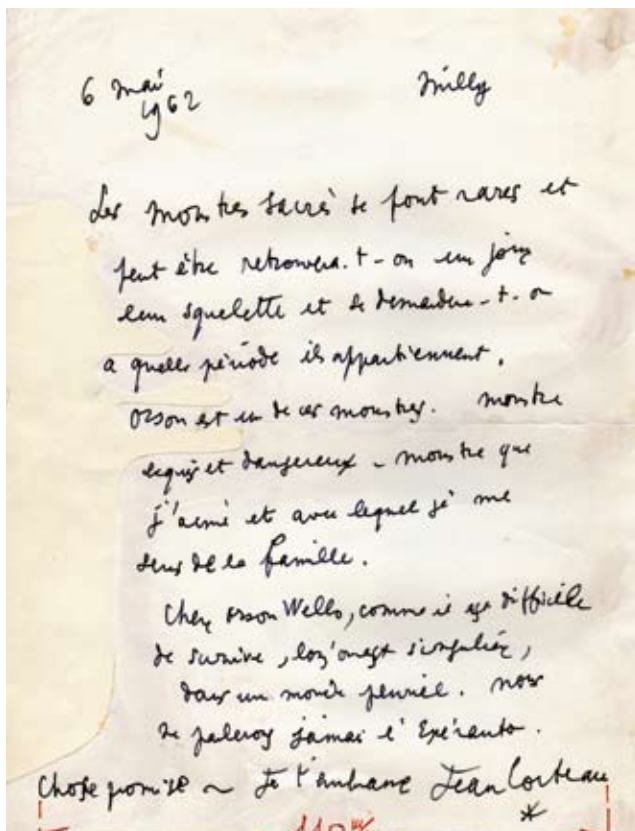 6 mai 1962 Milly
Les monstres sacrés se font rares et
peut être retrouvera-t-on un jour
leur squelette et se demandera-t-on
a quelle période ils appartiennent.
Orson est un de ces monstres. Monstre
exquis et dangereux - monstre que
j'aime et avec lequel je me
sens de la famille.
Cher Orson Welles, comme il est difficile
de survivre, lorsqu'on est singulier,
dans un monde pluriel. Nous
ne parlerons jamais l'Espéranto.
Chose promise ~ Je t'embrasse Jean Cocteau
*